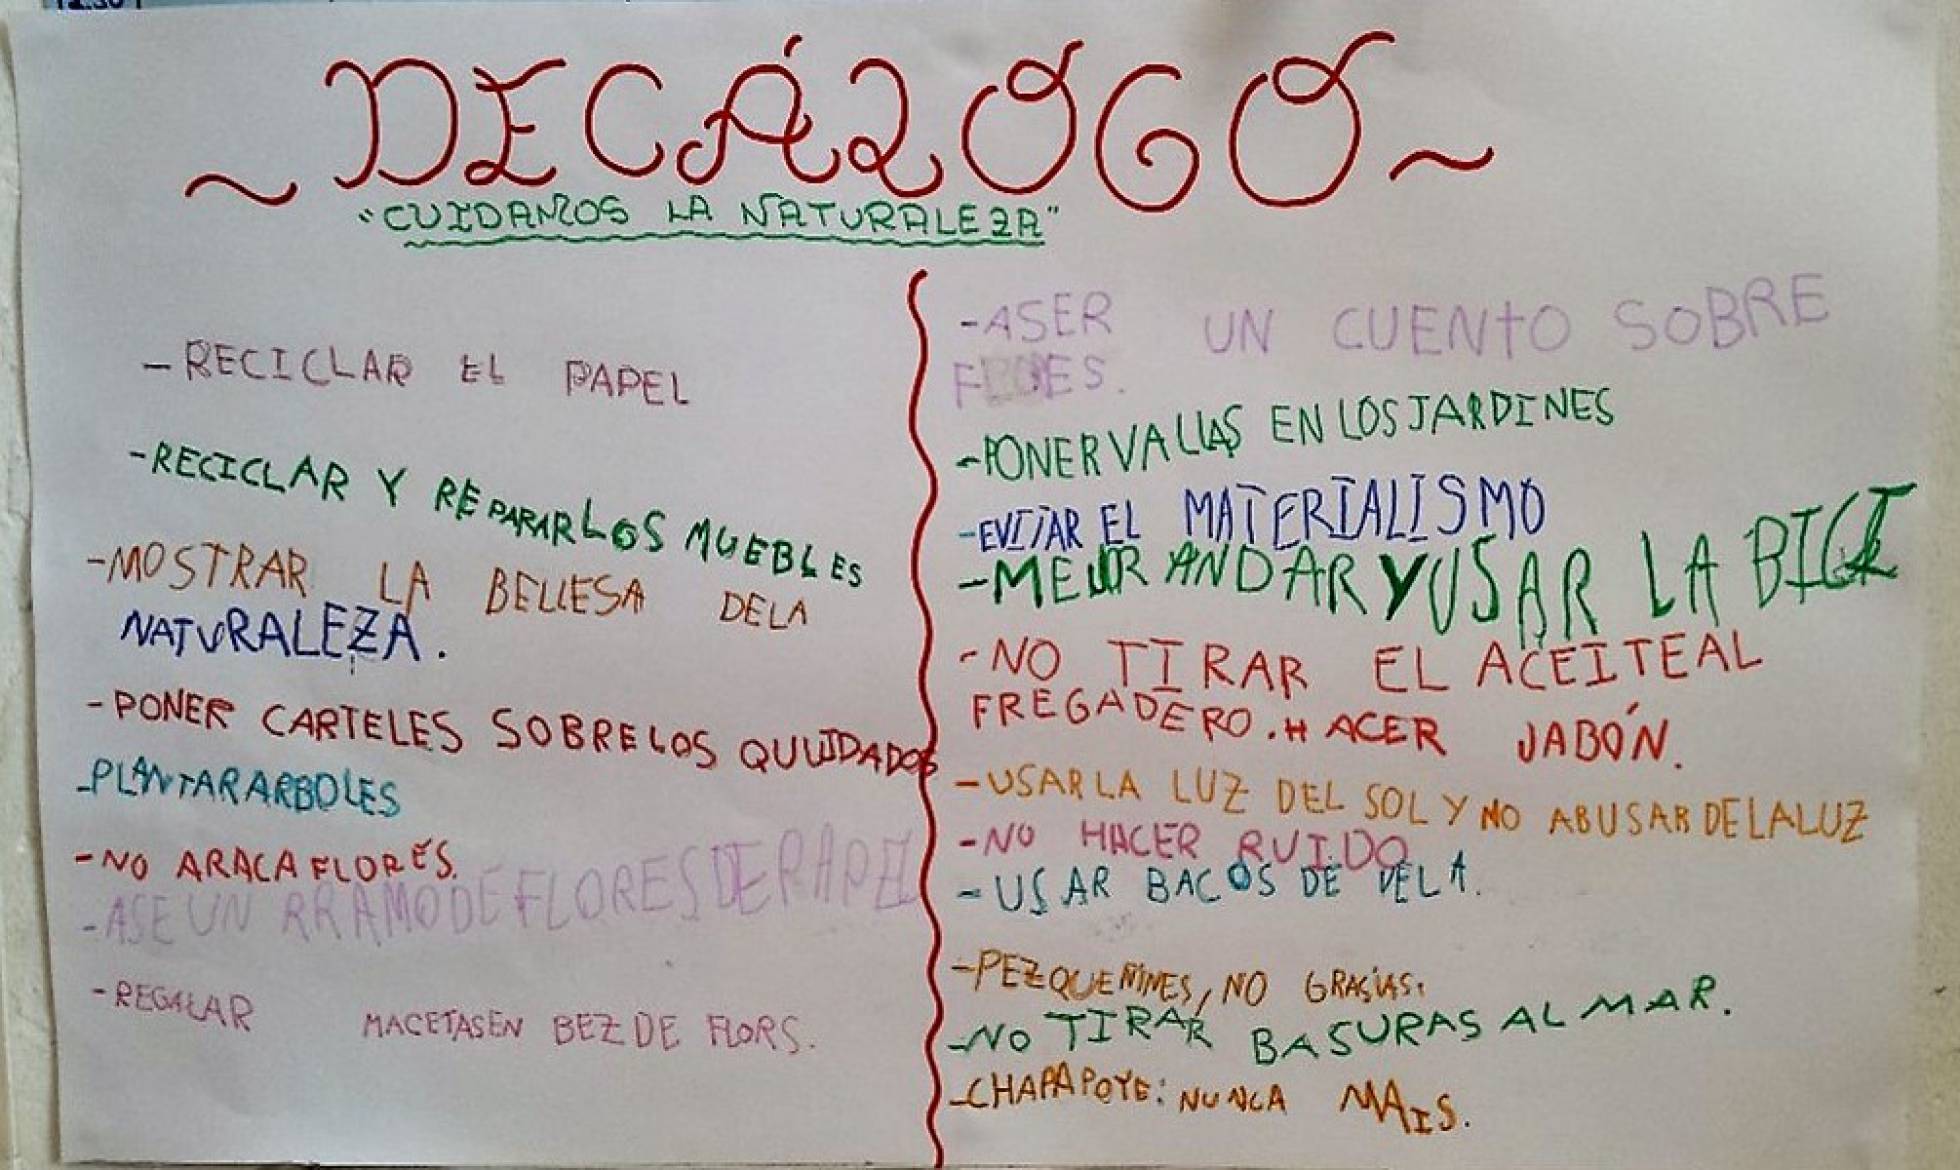 ~DECÁLOGO~
"CUIDAMOS LA NATURALEZA"
-RECICLAR EL PAPEL
-RECICLAR Y REPARAR LOS MUEBLES
-MOSTRAR LA BELLESA DELA
NATURALEZA.
-PONER CARTELES SOBRE LOS QUUIDADOS
-PLANTAR ARBOLES
-NO ARACA FLORES.
-ASE UN RRAMO DE FLORES DE PAPEL
-REGALAR MACETAS EN BEZ DE FLORS.
-ASER UN CUENTO SOBRE
-PONER VALLAS EN LOS JARDINES
-EVITAR EL MATERIALISMO
-MEJOR ANDAR Y USAR LA BICI
-NO TIRAR EL ACEITE AL
FREGADERO. HACER JABÓN.
-USAR LA LUZ DEL SOL Y NO ABUSAR DE LA LUZ
-NO HACER RUIDO
-USAR BACOS DE VELA.
-PEZQUEÑINES, NO GRASIAS.
-NO TIRAR BASURAS AL MAR.
-CHAPAPOTE: NUNCA MAIS.